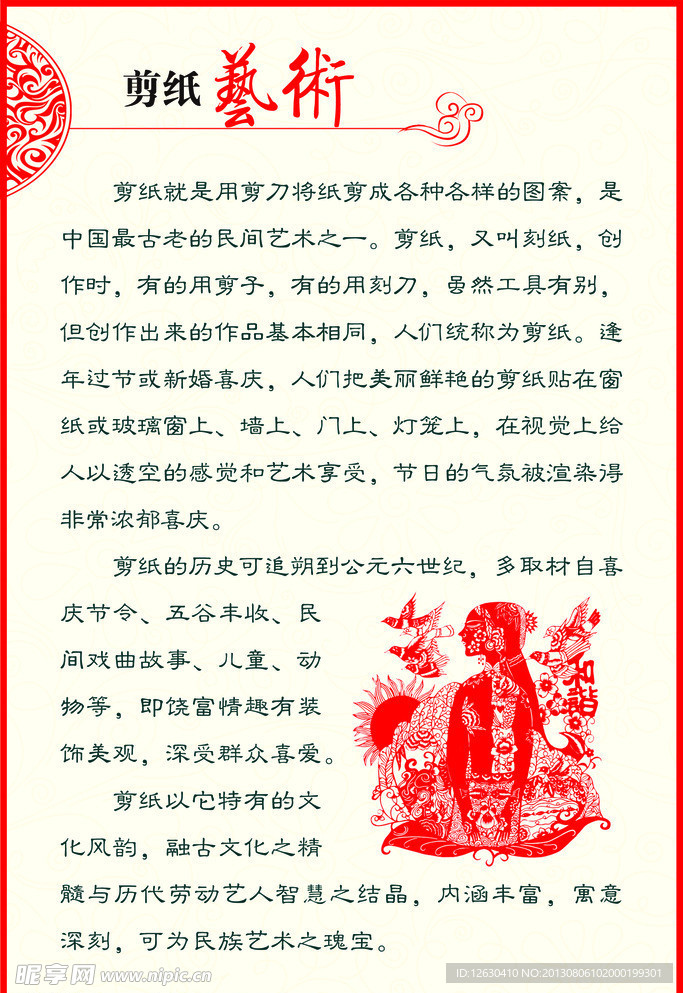 剪纸藝術
剪纸就是用剪刀将纸剪成各种各样的图案，是
中国最古老的民间艺术之一。剪纸，又叫刻纸，创
作时，有的用剪子，有的用刻刀，虽然工具有别，
但创作出来的作品基本相同，人们统称为剪纸。逢
年过节或新婚喜庆，人们把美丽鲜艳的剪纸贴在窗
纸或玻璃窗上、墙上、门上、灯笼上，在视觉上给
人以透空的感觉和艺术享受，节日的气氛被渲染得
非常浓郁喜庆。
剪纸的历史可追朔到公元六世纪，多取材自喜
庆节令、五谷丰收、民
间戏曲故事、儿童、动
物等，即饶富情趣有装
饰美观，深受群众喜爱。
和諧
剪纸以它特有的文
化风韵，融古文化之精
髓与历代劳动艺人智慧之结晶，内涵丰富，寓意
深刻，可为民族艺术之瑰宝。
昵享网 www.nipic.cn
ID:12630410 NO:20130806102000199301